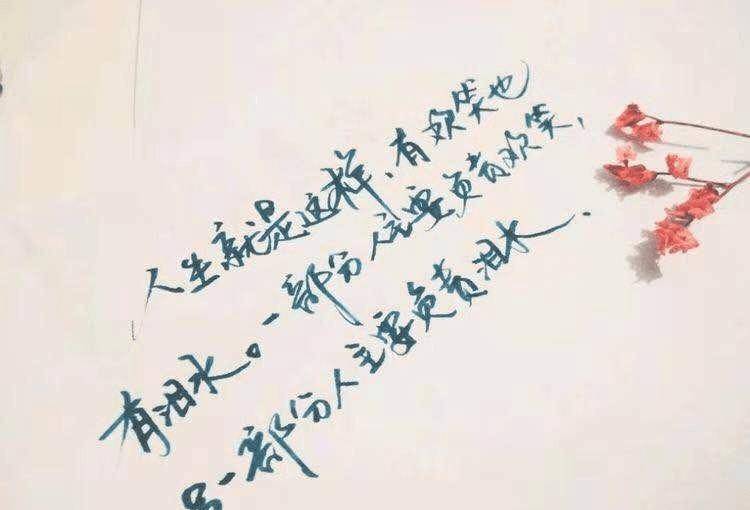 人生就是这样，有欢笑也
有泪水。一部分人主要负责欢笑，
另一部分人主要负责泪水．